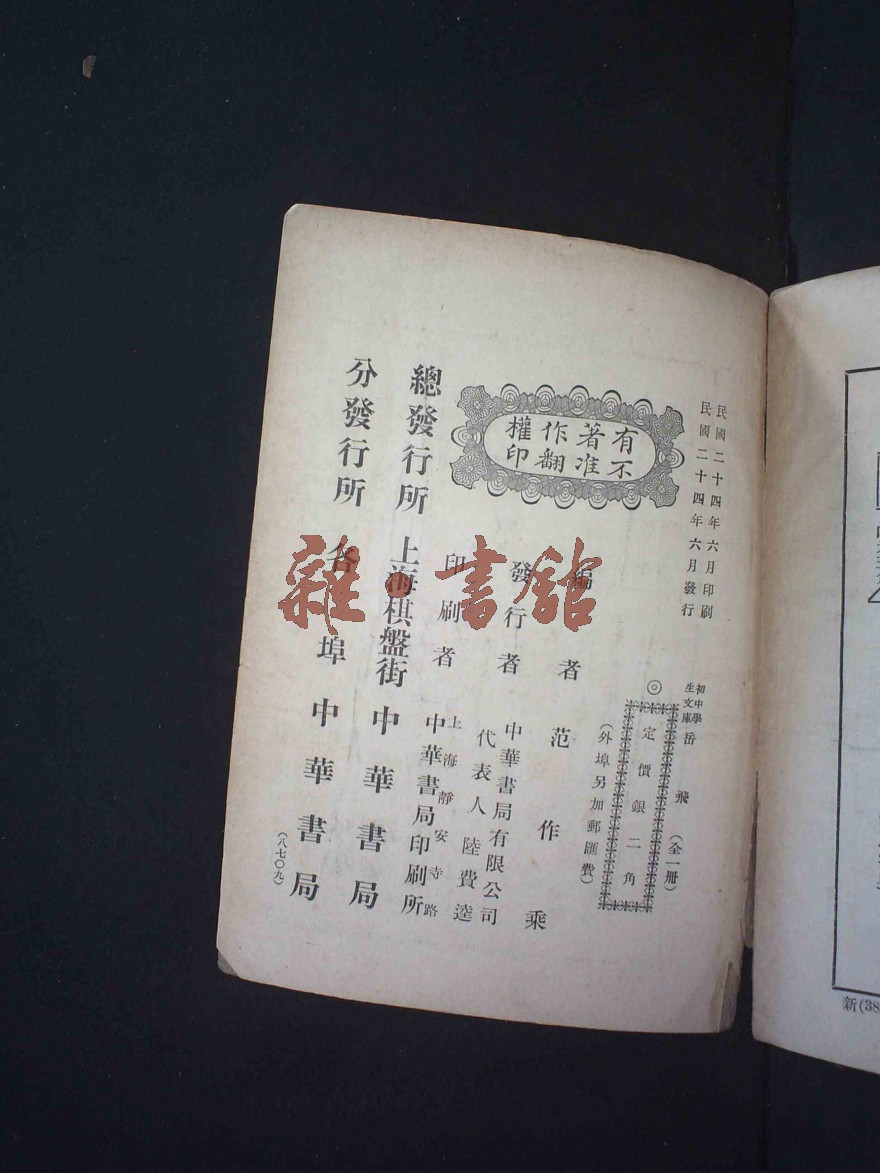 民國二十四年六月印刷
民國二十四年六月發行
初中學生文庫 岳飛 (全一冊)
◎定價銀二角
(外埠另加郵匯費)
有著作權
不准翻印
編者 范作乘
發行者 中華書局有限公司
代表人 陸費逵
印刷者 上海靜安寺路
中華書局印刷所
總發行所 上海棋盤街 中華書局
分發行所 各埠 中華書局
(八七〇九)
雜·書館
新(38